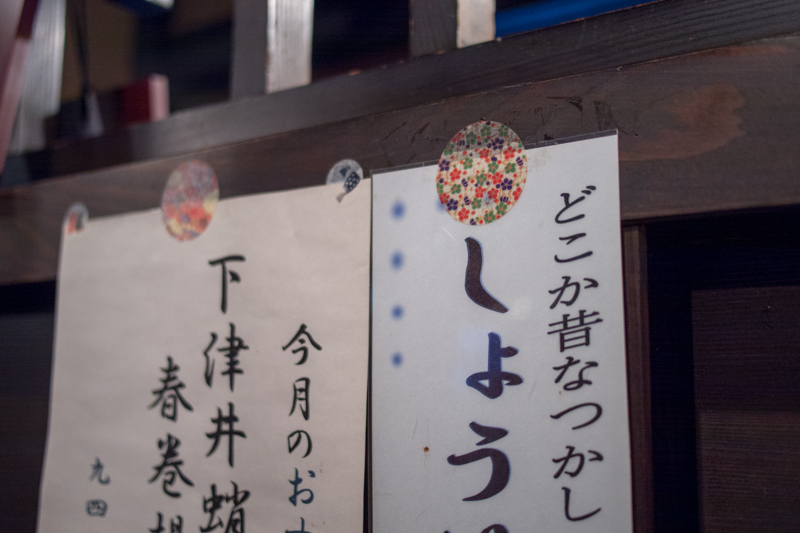 どこか昔なつかし
しょう
今月のお
下津井蛸
春巻
九四